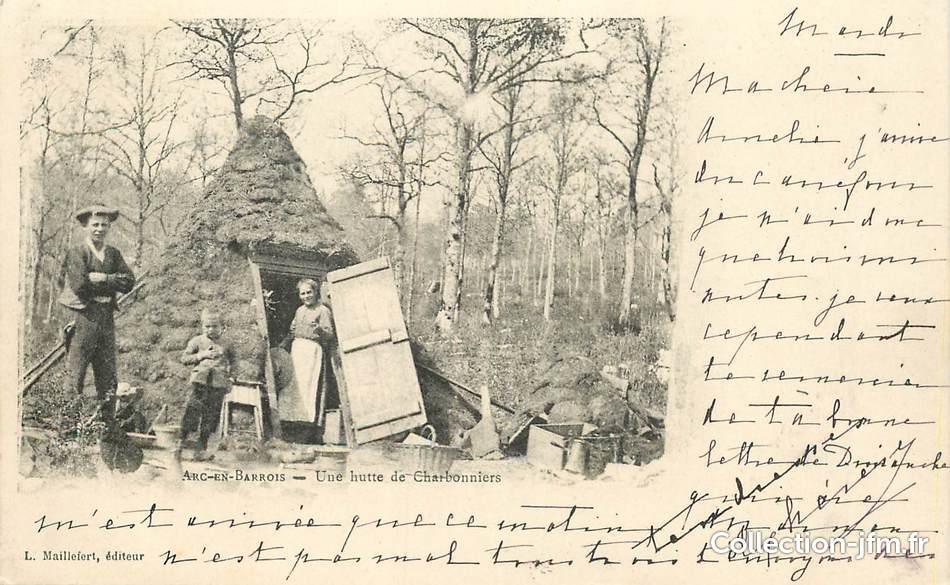 Mardi
Ma chère
Amelie j'arrive
du
je n'ai donc
que trois mi
nutes. je veux
cependant
te remercier
de ta bonne
lettre de Dimanche
qui
m'est arrivée que ce matin
n'est pas mal
ARC-EN-BARROIS — Une hutte de Charbonniers
L. Maillefert, éditeur
Collection-jfm.fr